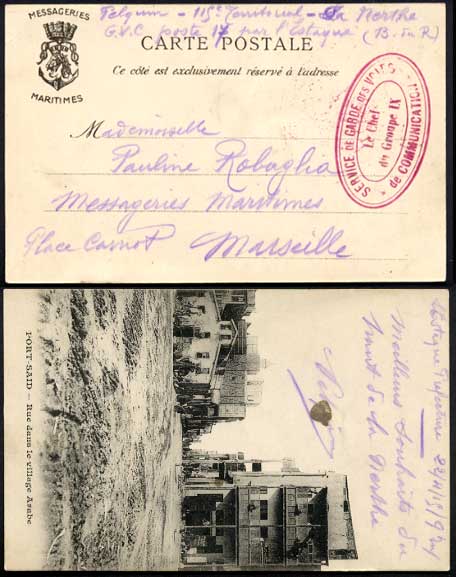 MESSAGERIES
MARITIMES
115e Territorial - La Nerthe
G.V.C. poste 17 sur l'Estaque (B. du R)
CARTE POSTALE
Ce côté est exclusivement réservé à l'adresse
SERVICE DE GARDE DES VOIES
de COMMUNICATION
Le Chef
du Groupe IX
Mademoiselle
Pauline Robaglia
Messageries Maritimes
Place Carnot Marseille
PORT-SAID — Rue dans le village Arabe
Meilleurs souhaits du
de la Nerthe